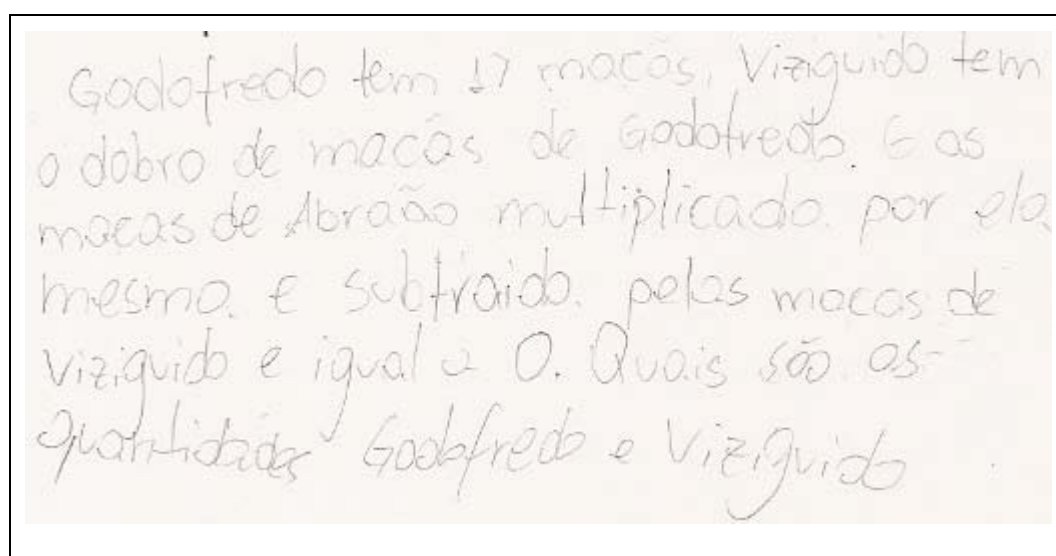 Godofredo tem 17 maças, Viziguido tem
o dobro de maçãs de Godofredo. E as
macas de Abraão multiplicado por ela
mesmo. e subtraido. pelas macas de
Viziguido e igual a 0. Quais são as
quantidades Godofredo e Viziguido